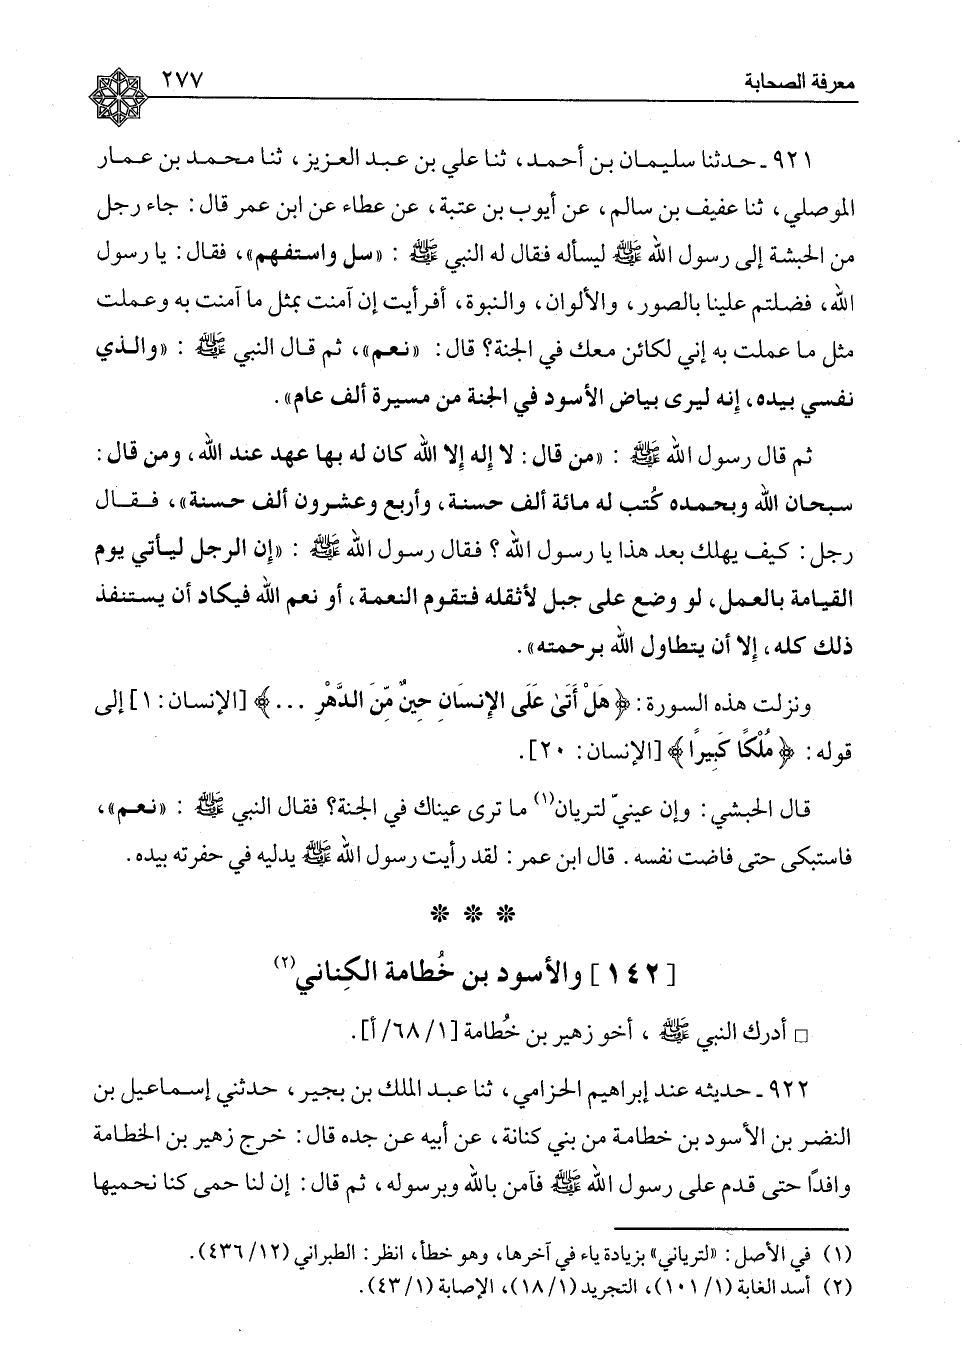 معرفة الصحابة ٢٧٧
٩٢١ ـ حدثنا سليمان بن أحمد، ثنا علي بن عبد العزيز، ثنا محمد بن عمار
الموصلي، ثنا عفيف بن سالم، عن أيوب بن عتبة، عن عطاء عن ابن عمر قال: جاء رجل
من الحبشة إلى رسول الله ﷺ ليسأله فقال له النبي ﷺ : «سل واستفهم»، فقال: يا رسول
الله، فضلتم علينا بالصور، والألوان، والنبوة، أفرأيت إن آمنت بمثل ما آمنت به وعملت
مثل ما عملت به إني لكائن معك في الجنة؟ قال: «نعم»، ثم قال النبي ﷺ : «والذي
نفسي بيده، إنه ليرى بياض الأسود في الجنة من مسيرة ألف عام».
ثم قال رسول الله ﷺ : «من قال: لا إله إلا الله كان له بها عهد عند الله، ومن قال:
سبحان الله وبحمده كُتب له مائة ألف حسنة، وأربع وعشرون ألف حسنة»، فقال
رجل: كيف يهلك بعد هذا يا رسول الله ؟ فقال رسول الله ﷺ : «إن الرجل ليأتي يوم
القيامة بالعمل، لو وضع على جبل لأثقله فتقوم النعمة، أو نعم الله فيكاد أن يستنفذ
ذلك كله، إلا أن يتطاول الله برحمته».
ونزلت هذه السورة: ﴿هَلْ أَتَىٰ عَلَى الإِنسَانِ حِينٌ مِّنَ الدَّهْرِ ...﴾ [الإنسان: ١] إلى
قوله: ﴿مُلْكًا كَبِيرًا﴾ [الإنسان: ٢٠].
قال الحبشي: وإن عينيّ لتريان(١) ما ترى عيناك في الجنة؟ فقال النبي ﷺ : «نعم»،
فاستبكى حتى فاضت نفسه. قال ابن عمر: لقد رأيت رسول الله ﷺ يدليه في حفرته بيده.
* * *
[١٤٢] والأسود بن خُطامة الكِناني(٢)
□ أدرك النبي ﷺ ، أخو زهير بن خُطامة [١/ ٦٨/ أ].
٩٢٢ ـ حديثه عند إبراهيم الحزامي، ثنا عبد الملك بن بجير، حدثني إسماعيل بن
النضر بن الأسود بن خطامة من بني كنانة، عن أبيه عن جده قال: خرج زهير بن الخطامة
وافدًا حتى قدم على رسول الله ﷺ فآمن بالله وبرسوله، ثم قال: إن لنا حمى كنا نحميها
(١) في الأصل: «لترياني» بزيادة ياء في آخرها، وهو خطأ، انظر: الطبراني (١٢/ ٤٣٦).
(٢) أسد الغابة (١/ ١٠١)، التجريد (١/ ١٨)، الإصابة (١/ ٤٣).